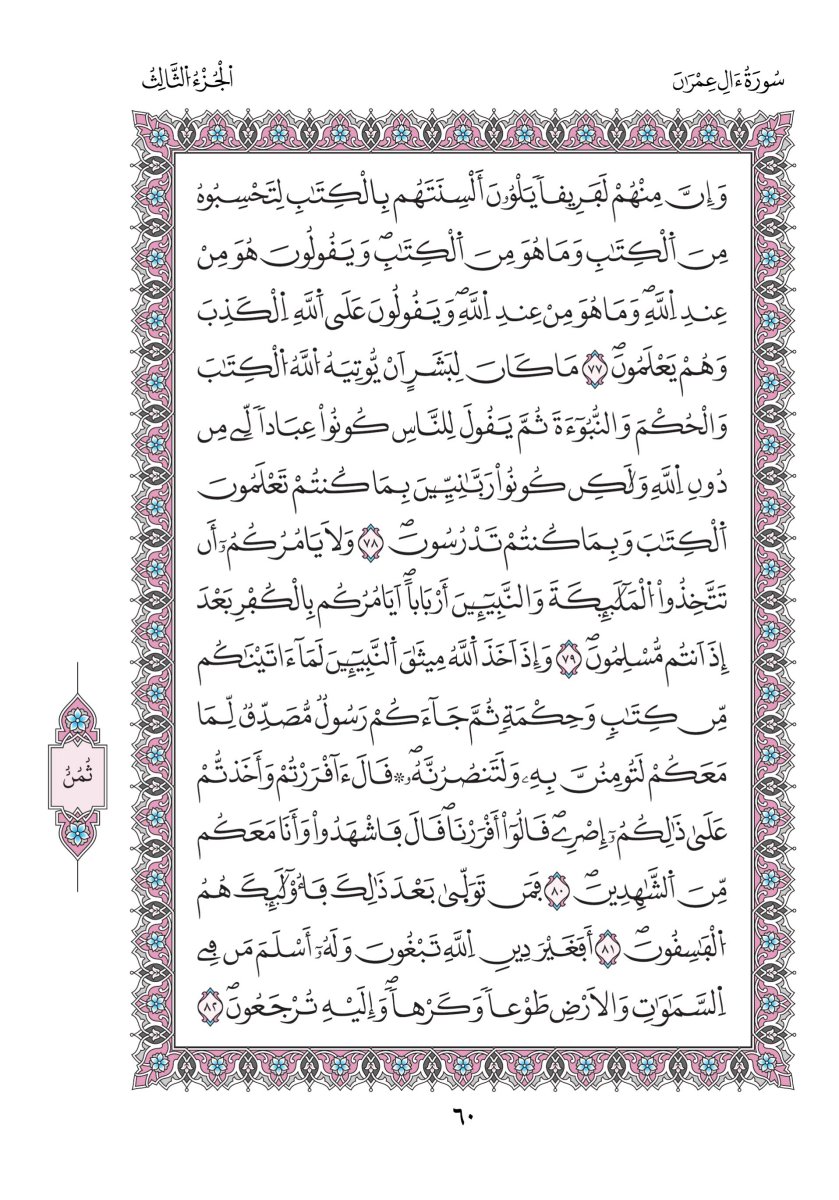 سُورَةُ ءَالِ عِمْرَٰنَ
اَلْجُزْءُ الثَّالِثُ
وَإِنَّ مِنْهُمْ لَفَرِيقاٗ يَلْوُۥنَ أَلْسِنَتَهُم بِالْكِتَٰبِ لِتَحْسِبُوهُ
مِنَ اَ۬لْكِتَٰبِ وَمَا هُوَ مِنَ اَ۬لْكِتَٰبِۖ وَيَقُولُونَ هُوَ مِنْ
عِندِ اِ۬للَّهِۖ وَمَا هُوَ مِنْ عِندِ اِ۬للَّهِۖ وَيَقُولُونَ عَلَى اَ۬للَّهِ اِ۬لْكَذِبَ
وَهُمْ يَعْلَمُونَۖ ٧٧ مَا كَانَ لِبَشَرٍ اَنْ يُّوتِيَهُ اُ۬للَّهُ اُ۬لْكِتَٰبَ
وَالْحُكْمَ وَالنُّبُوٓءَةَ ثُمَّ يَقُولَ لِلنَّاسِ كُونُواْ عِبَاداٗ لِّے مِن
دُونِ اِ۬للَّهِ وَلَٰكِن كُونُواْ رَبَّٰنِيِّينَ بِمَا كُنتُمْ تَعْلَمُونَ
اَ۬لْكِتَٰبَ وَبِمَا كُنتُمْ تَدْرُسُونَۖ ٧٨ وَلَا يَامُرُكُمُۥٓ أَن
تَتَّخِذُواْ اُ۬لْمَلَٰٓئِكَةَ وَالنَّبِيٓـِٕينَ أَرْبَاباًۖ اَيَامُرُكُم بِالْكُفْرِ بَعْدَ
إِذَ اَنتُم مُّسْلِمُونَۖ ٧٩ وَإِذَ اَخَذَ اَ۬للَّهُ مِيثَٰقَ اَ۬لنَّبِيٓـِٕينَ لَمَآ ءَاتَيْنَٰكُم
مِّن كِتَٰبٖ وَحِكْمَةٖ ثُمَّ جَآءَكُمْ رَسُولٞ مُّصَدِّقٞ لِّمَا
مَعَكُمْ لَتُومِنُنَّ بِهِۦ وَلَتَنصُرُنَّهُۥۖ ۞ قَالَ ءَآقْرَرْتُمْ وَأَخَذتُّمْ
عَلَىٰ ذَٰلِكُمُۥٓ إِصْرِےۖ قَالُوٓاْ أَقْرَرْنَاۖ قَالَ فَاشْهَدُواْ وَأَنَا مَعَكُم
مِّنَ اَ۬لشَّٰهِدِينَۖ ٨٠ فَمَن تَوَلّ۪ىٰ بَعْدَ ذَٰلِكَ فَأُوْلَٰٓئِكَ هُمُ
اُ۬لْفَٰسِقُونَۖ ٨١ أَفَغَيْرَ دِينِ اِ۬للَّهِ تَبْغُونَ وَلَهُۥٓ أَسْلَمَ مَن فِے
اِ۬لسَّمَٰوَٰتِ وَالَارْضِ طَوْعاٗ وَكَرْهاٗۖ وَإِلَيْهِ تُرْجَعُونَۖ ٨٢
ثُمُنُ
٦٠